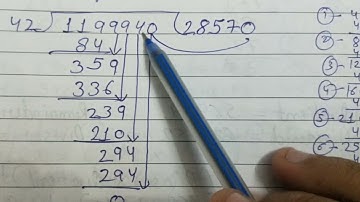 42) 1199940 (28570
84
359
336
239
210
294
294
0
①- 4
②- 8
③- 12
④- 16
⑤- 21
⑥- 25